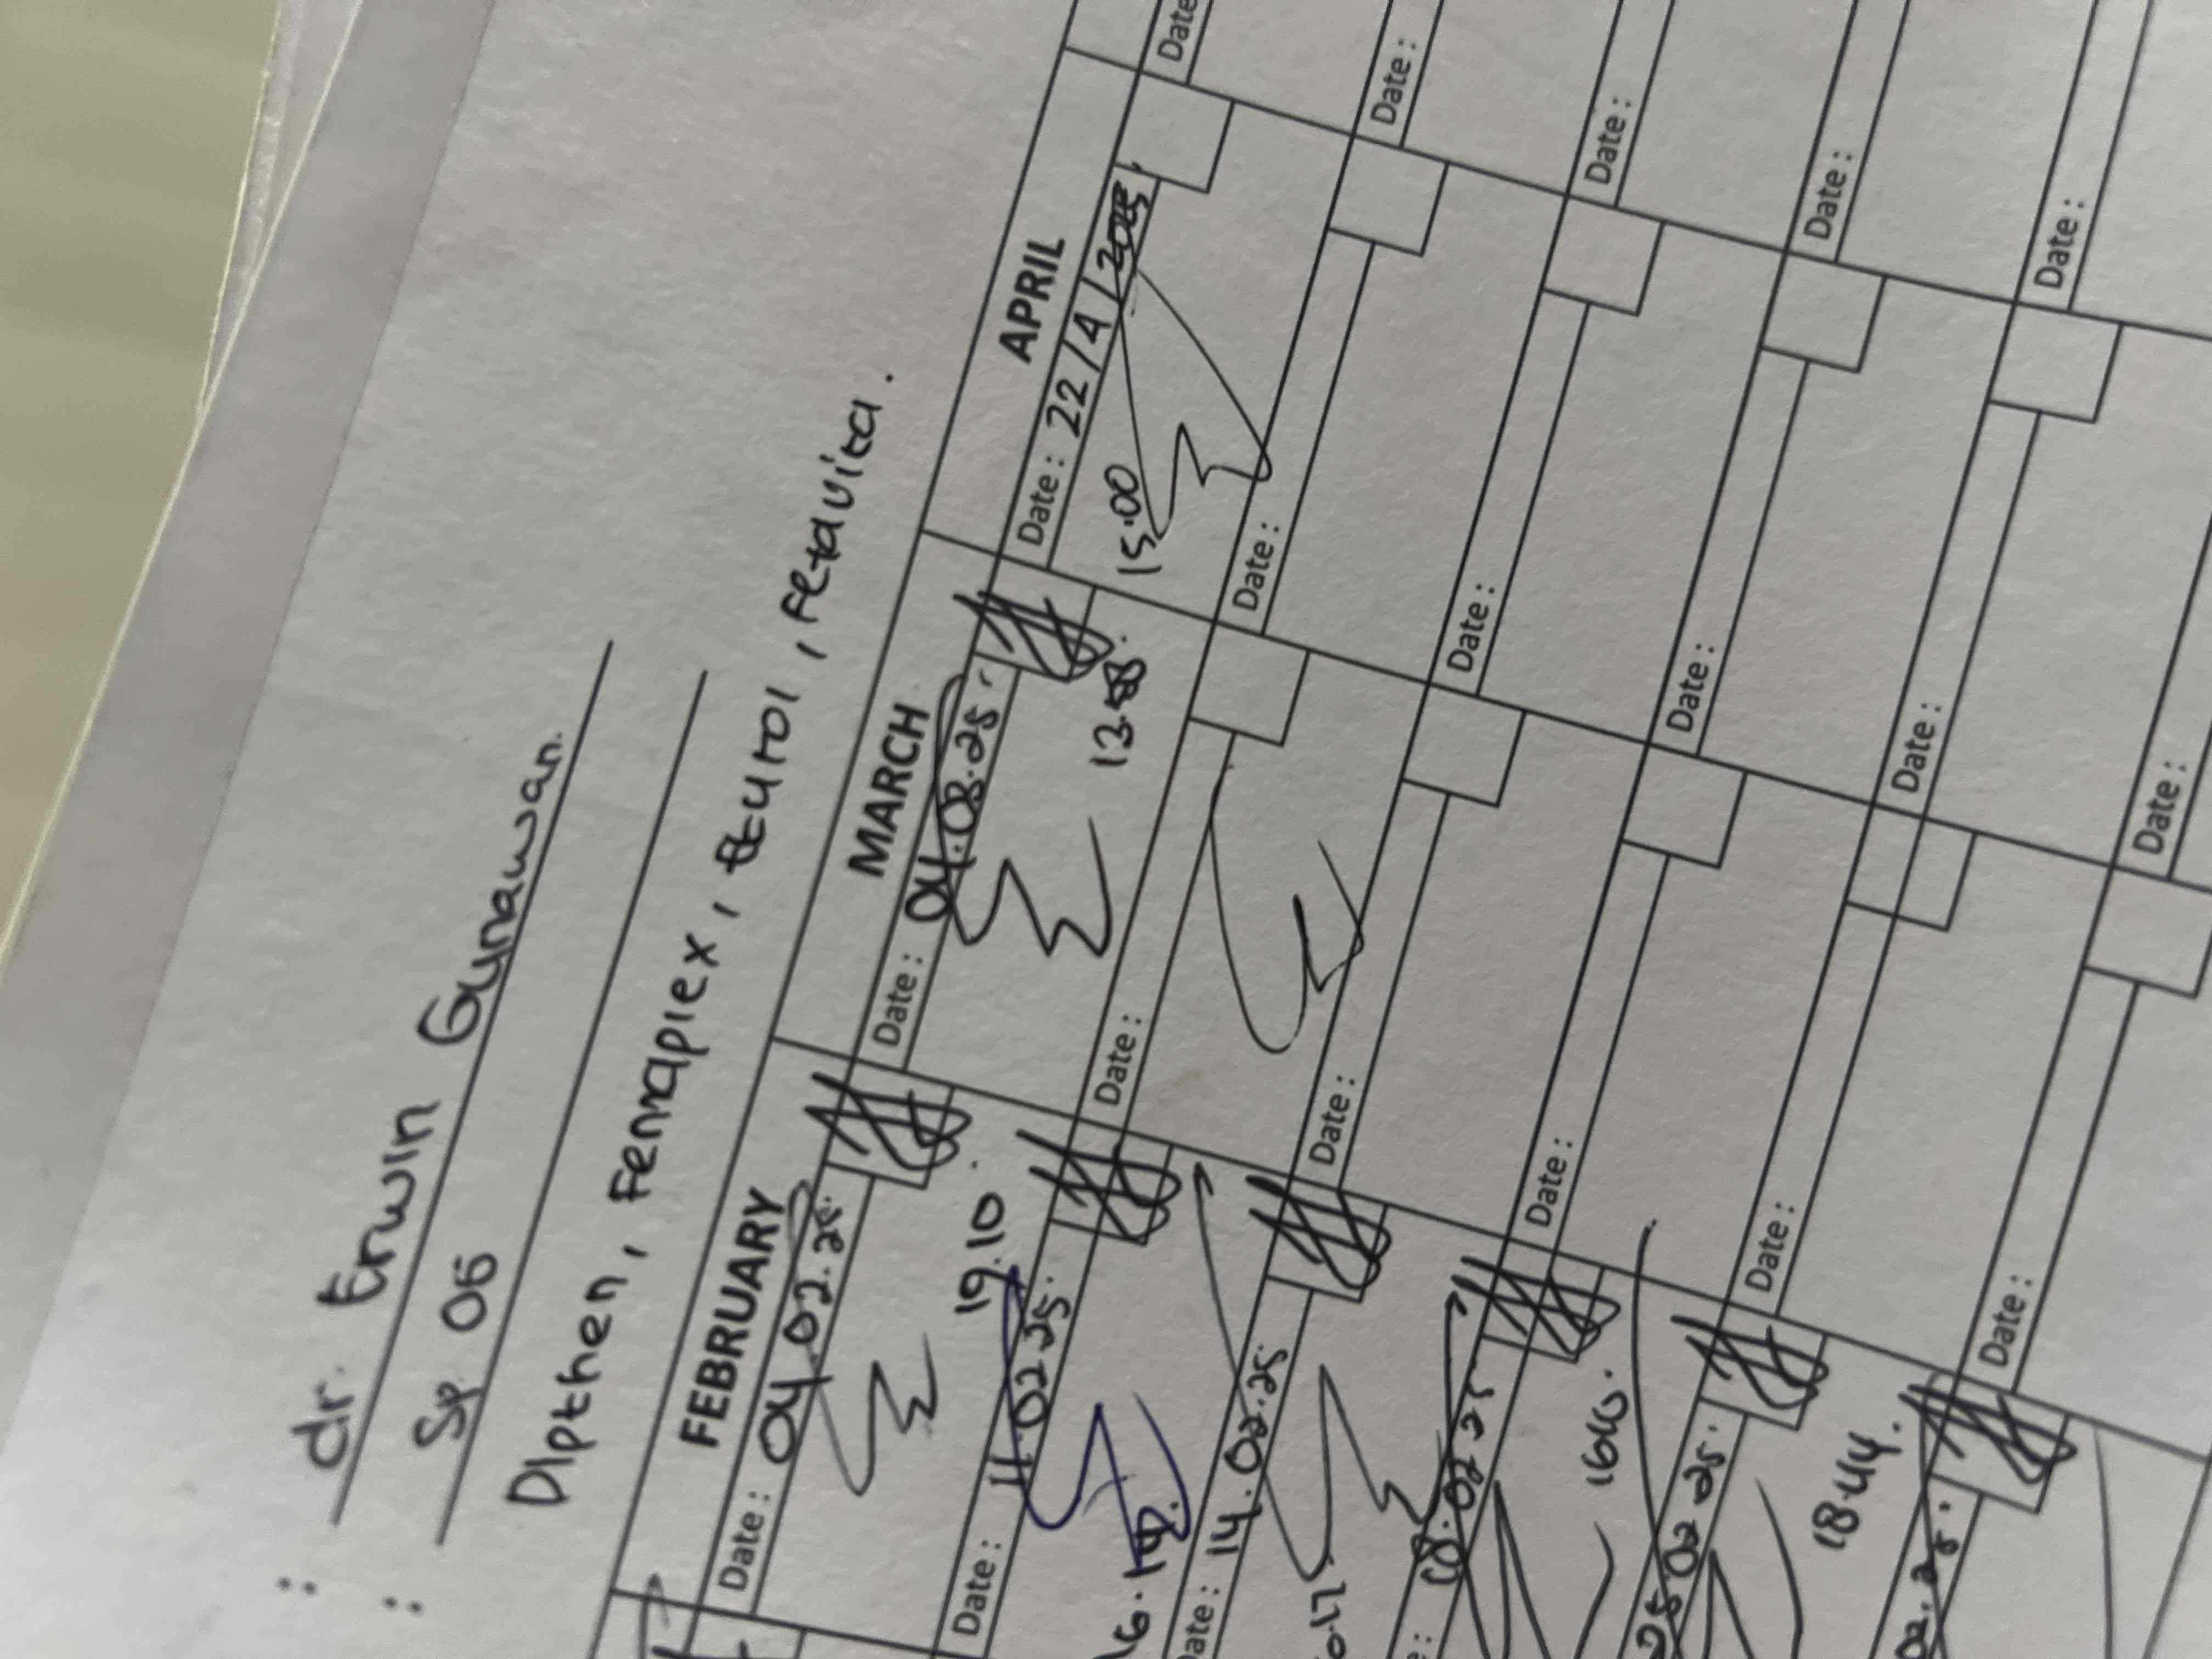 : dr. Erwin Gunawan.
: Sp. OG
Dipthen, Femaplex, , Fetavita.
FEBRUARY MARCH APRIL
Date : 04.02.25. Date : 04.03.25. Date : 22/4/2025 Date
19.10 13. 15.00
Date : 11.02.25. Date : Date : Date :
16.
Date : 14.02.25. Date : Date : Date :
Date : Date : Date :
.02.25
18.44.
25.02.25. Date : Date : Date :
02.25. Date : Date : Date :